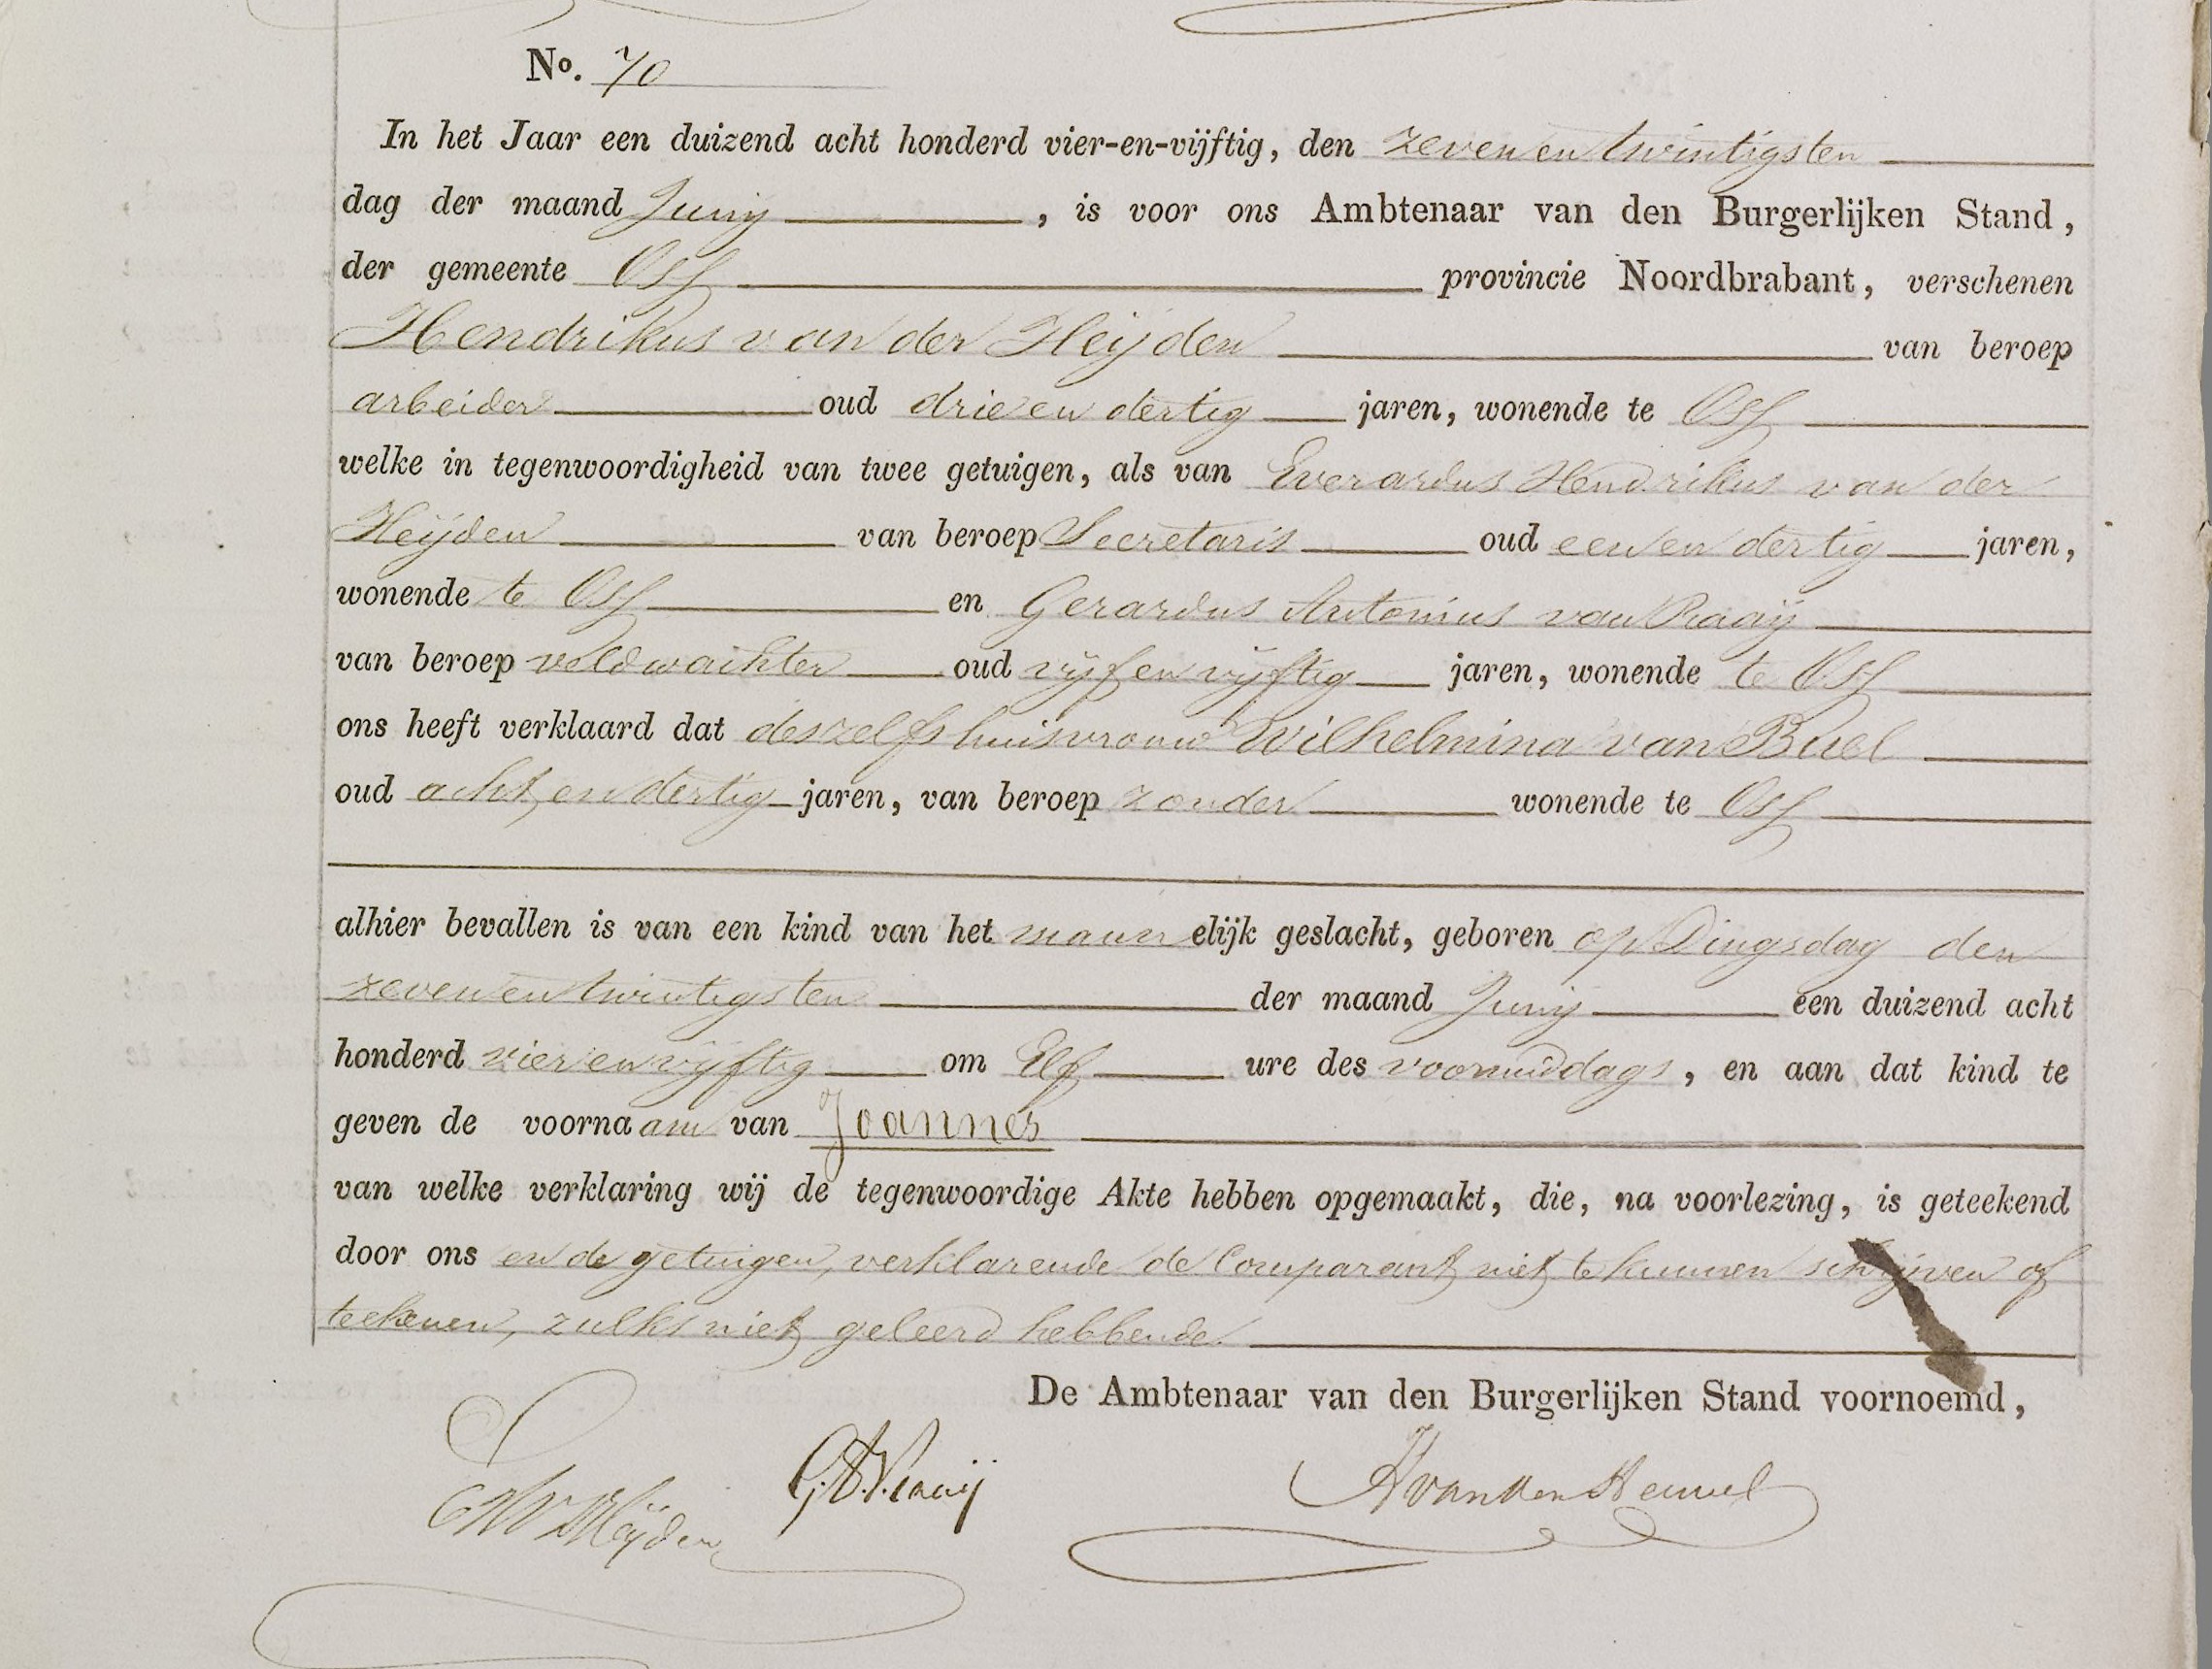 No. 70
In het Jaar een duizend acht honderd vier-en-vijftig, den zeven en twintigsten
dag der maand Junij, is voor ons Ambtenaar van den Burgerlijken Stand,
der gemeente Oss provincie Noordbrabant, verschenen
Hendrikus van der Heijden van beroep
arbeider oud drie en dertig jaren, wonende te Oss
welke in tegenwoordigheid van twee getuigen, als van Everardus Hendrikus van der
Heijden van beroep Secretaris oud een en dertig jaren,
wonende te Oss en Gerardus Antonius van Raaij
van beroep veldwachter oud vijf en vijftig jaren, wonende te Oss
ons heeft verklaard dat deszelfs huisvrouw Wilhelmina van Buel
oud acht en dertig jaren, van beroep zonder wonende te Oss
alhier bevallen is van een kind van het mannelijk geslacht, geboren op Dingsdag den
zeven en twintigsten der maand Junij een duizend acht
honderd vier en vijftig om Elf ure des voormiddags, en aan dat kind te
geven de voornaam van Joannes
van welke verklaring wij de tegenwoordige Akte hebben opgemaakt, die, na voorlezing, is geteekend
door ons en de getuigen, verklarende de Comparant niet te kunnen schrijven of
teekenen, zulks niet geleerd hebbende.
De Ambtenaar van den Burgerlijken Stand voornoemd,
EHVDHeijden G.A.V.Raaij HvandenHeuvel